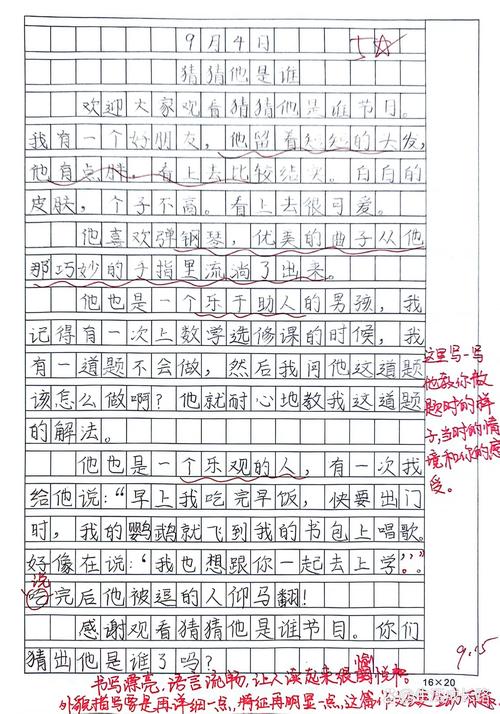 9月4日
5☆
猜猜他是谁
欢迎大家观看猜猜他是谁节目。
我有一个好朋友，他留着短短的头发，
他有点胖，看上去比较结实。白白的
皮肤，个子不高。看上去很可爱。
他喜欢弹钢琴，优美的曲子从他
那巧妙的手指里流淌了出来。
他也是一个乐于助人的男孩，我
记得有一次上数学选修课的时候，我
有一道题不会做，然后我问他这道题
该怎么做啊？他就耐心地教我这道题
的解法。
这里写一写
他教你做
题时的样
子，当时的情
境和你的感
受。
他也是一个乐观的人，有一次我
给他说：“早上我吃完早饭，快要出门
时，我的鹦鹉就飞到我的书包上唱歌。
好像在说：‘我也想跟你一起去上学’”
说
完后他被逗的人仰马翻！
感谢观看猜猜他是谁节目。你们
猜出他是谁了吗？
9.15
16×20
书写漂亮，语言流畅，让人读起来很愉悦。
外貌描写要是再详细一点，特征再明显一点，这篇